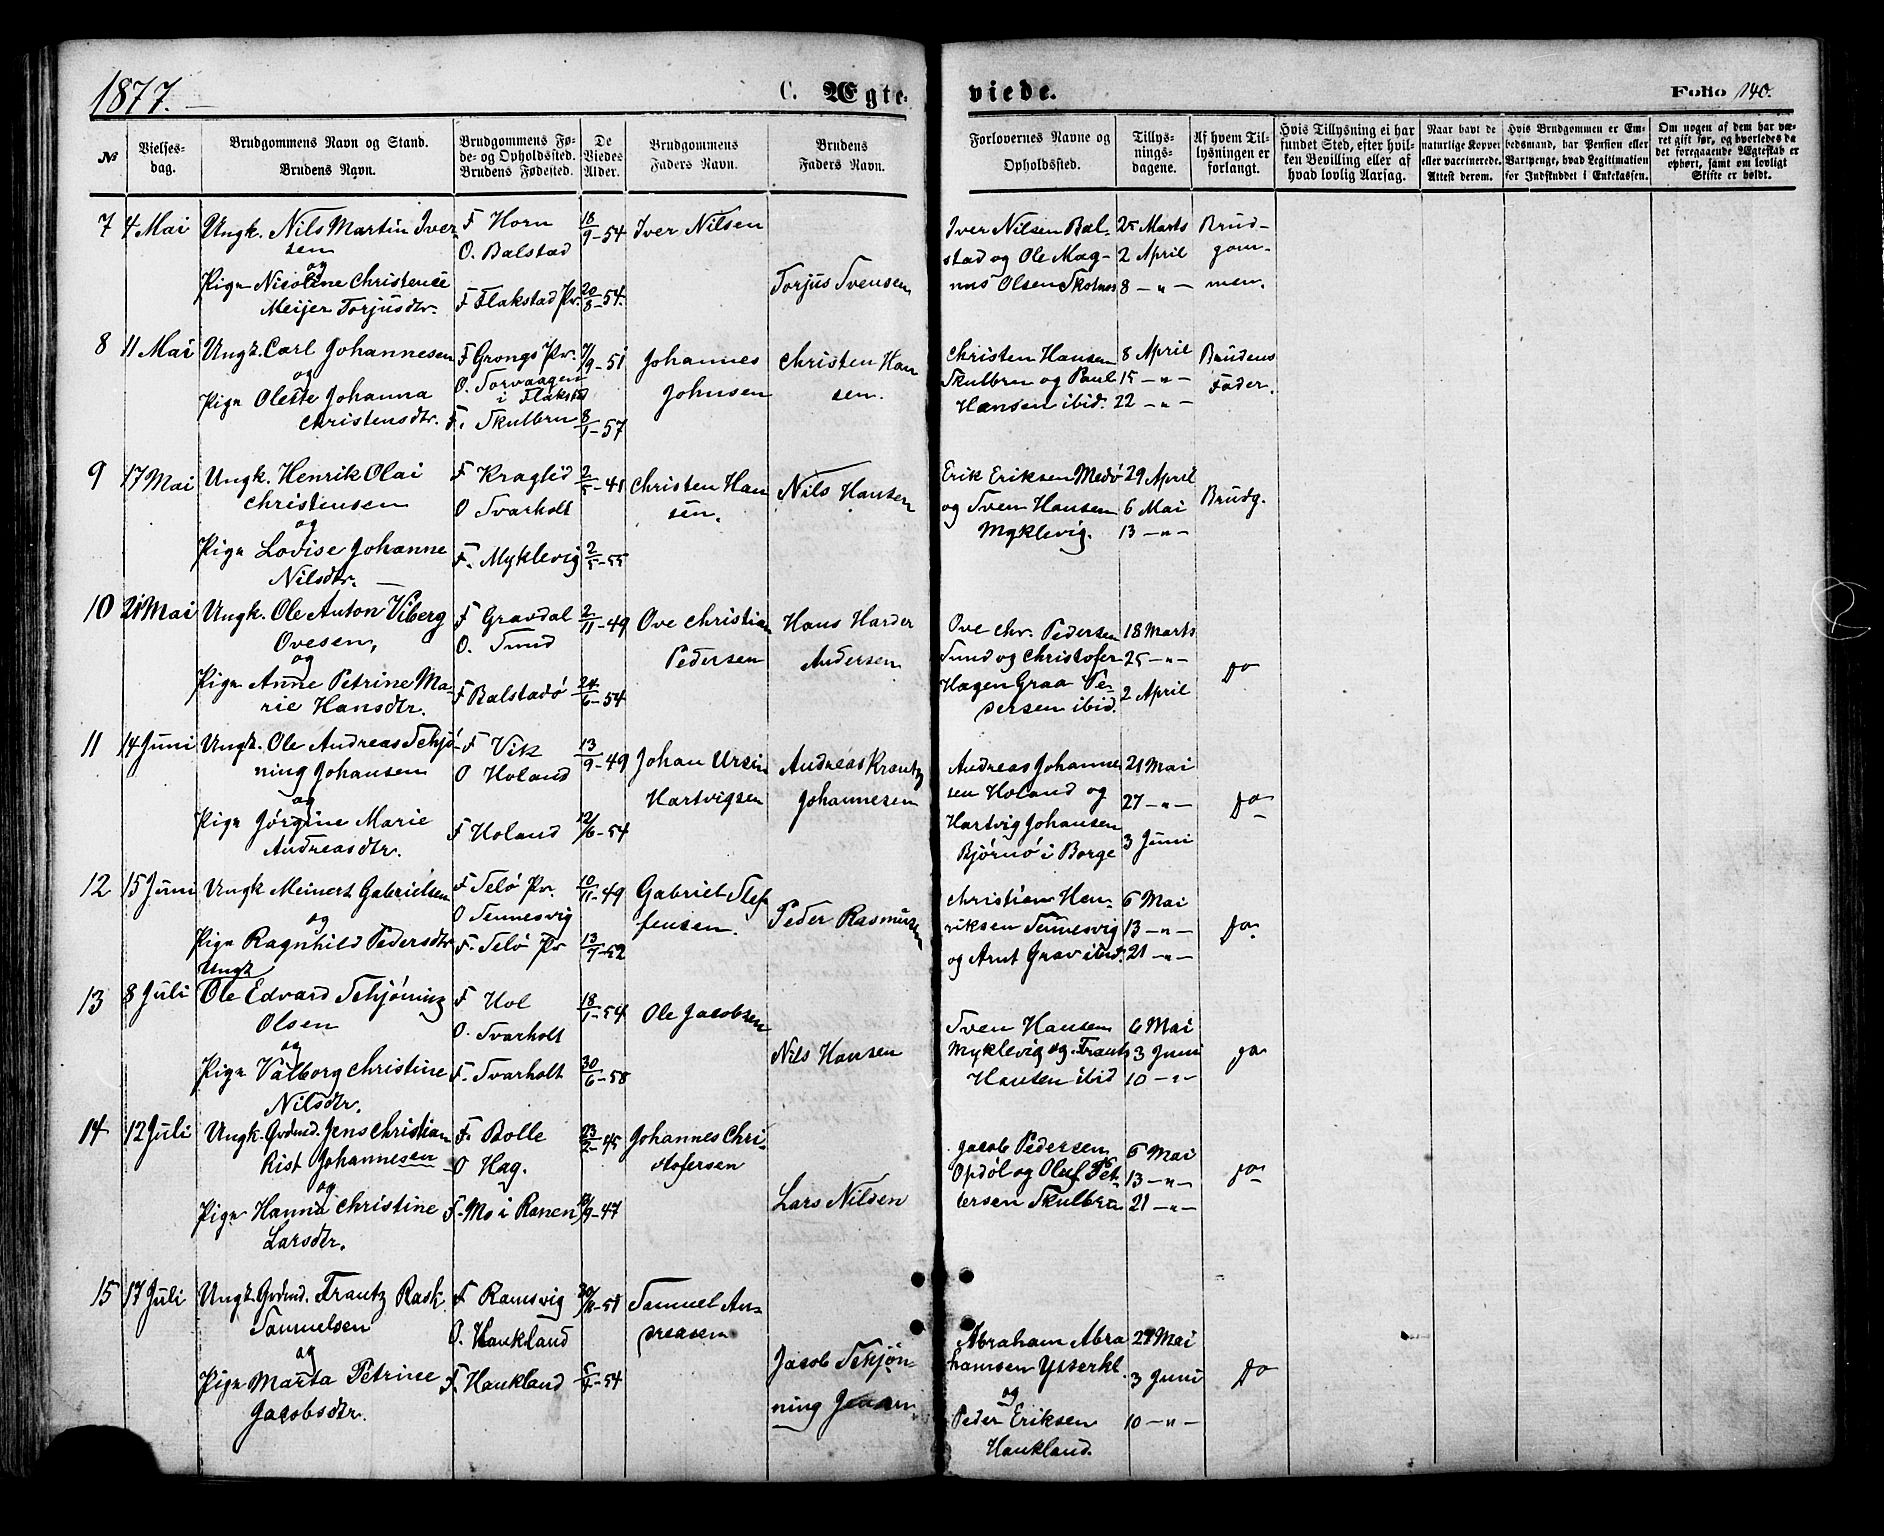 1877.
C. Ægte-
viede.
Folio 140.
№
Vielses-
dag.
Brudgommens Navn og Stand.
Brudens Navn.
Brudgommens Fø-
de- og Opholdssted.
Brudens Fødested.
De
Viedes
Alder.
Brudgommens
Faders Navn.
Brudens
Faders Navn.
Forlovernes Navne og
Opholdssted.
Tillys-
nings-
dagene.
Af hvem Til-
lysningen er
forlangt.
Hvis Tillysning ei har
fundet Sted, efter hvil-
ken Bevilling eller af
hvad lovlig Aarsag.
Naar havt de
naturlige Kopper
eller vaccinerede.
Attest derom.
Hvis Brudgommen er Em-
bedsmand, har Pension eller
Vartpenge, hvad Legitimation
for Indskuddet i Enkekassen.
Om nogen af dem har væ-
ret gift før, og hvorledes da
det foregaaende Ægteskab er
ophørt, samt om lovligt
Skifte er holdt.
7
4 Mai
Ungk. Nils Martin Iver-
sen
og
Pige Nicoline Christence
Meijer Torjusdtr.
F Horn
O. Balstad
F Flakstad Pr.
18/9-54
20/8-54.
Iver Nilsen
Torjus Svensen
Iver Nilsen Bal-
stad og Ole Mag-
nus Olsen Skotnes
25 Marts
2 April
8 -"-
Brud-
gom-
men.
8
11 Mai
Ungk. Carl Johannesen
og
Pige Olette Johanna
Christensdtr.
F Grongs Pr.
O. Sorvaagen
i Flakstd
F. Skulbru
7/9-51
8/1-57
Johannes
Johnsen
Christen Han
sen.
Christen Hansen
Skulbru og Paul
Hansen ibid.
8 April
15 -"-
22 -"-
Brudens
Fader.
9
17 Mai
Ungk. Henrik Olai
Christensen
og
Pige Lovise Johanne
Nilsdtr.
F Kraglid
O Svarholt
F. Myklevig
2/5-41
2/5-55
Christen Han
sen.
Nils Hansen
Erik Eriksen Medö
og Sven Hansen
Myklevig.
29 April
6 Mai
13 -"-
Brudg.
10
21 Mai
Ungk. Ole Anton Viberg
Ovesen,
og
Pige Anne Petrine Ma-
rie Hansdtr.
F Gravdal
O. Sund
F Balstadö
2/11-49
24/6-54
Ove Christian
Pedersen
Hans Harder
Andersen
Ove Chr. Pedersen
Sund og Christofer
Hagen Graa Pe-
dersen ibid.
18 Marts
25 -"-
2 April
do
11
14 Juni
Ungk. Ole Andreas Schjö-
ning Johansen
og
Pige Jørgine Marie
Andreasdtr.
F Vik
O Holand
F Holand
13/9-49
12/6-54
Johan Ursin
Hartvigsen
Andreas Krantz
Johannesen
Andreas Johanne
sen Holand og
Hartvig Johansen
Bjørnö i Borge
21 Mai
27 -"-
3 Juni
do
12
15 Juni
Ungk Meinert Gabrielsen
og
Pige Ragnhild Pedersdtr
F Selö Pr.
O Sennesvig
F. Selö Pr
10/11-49
13/7-52
Gabriel Stef
fensen.
Peder Rasmusen
Christian Hen-
riksen Sennesvig
og Arnt Grav ibid.
6 Mai
13 -"-
21 -"-
do
13
8 Juli
Ungk
Ole Edvard Schjöning
Olsen
og
Pige Valborg Christine
Nilsdtr.
F Hol
O. Svarholt
F. Svarholt
18/1-54
30/6-58
Ole Jacobsen
Nils Hansen
Sven Hansen
Myklevig og Frants
Hansen ibid
6 Mai
3 Juni
10 -"-
do
14
12 Juli
Ungk. Grdmd. Jens Christian
Rist Johannesen
og
Pige Hanna Christine
Larsdtr.
F. Bolle
O Hag.
F. Mo i Ranen
23/2-45
/9-47
Johannes Chri-
stofersen
Lars Nilsen
Jacob Pedersen
Opdöl og Oluf Pet-
tersen Skulbru
6 Mai
13 -"-
21 -"-
do
15
17 Juli
Ungk. Grdmd. Frantz Rask
Samuelsen
og
Pige Marta Petrine
Jacobsdtr.
F Ramsvig
O. Haukland
F. Haukland
-51
-54
Samuel An-
dreasen
Jacob Schjön-
ning Jensen
Abraham Abra
hamsen Ysterkl.
og
Peder Eriksen
Haukland.
27 Mai
3 Juni
10 -"-
do